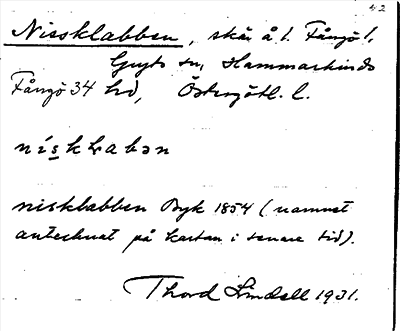 42
Nissklabben, skär å l. Fångö l,
Gryts sn, Hammarkinds
Fångö 34 hd, Östergötl. l.
nisklabən
nisklabben Byk 1854 (namnet
antecknat på kartan i senare tid).
Thord Lindell 1931.